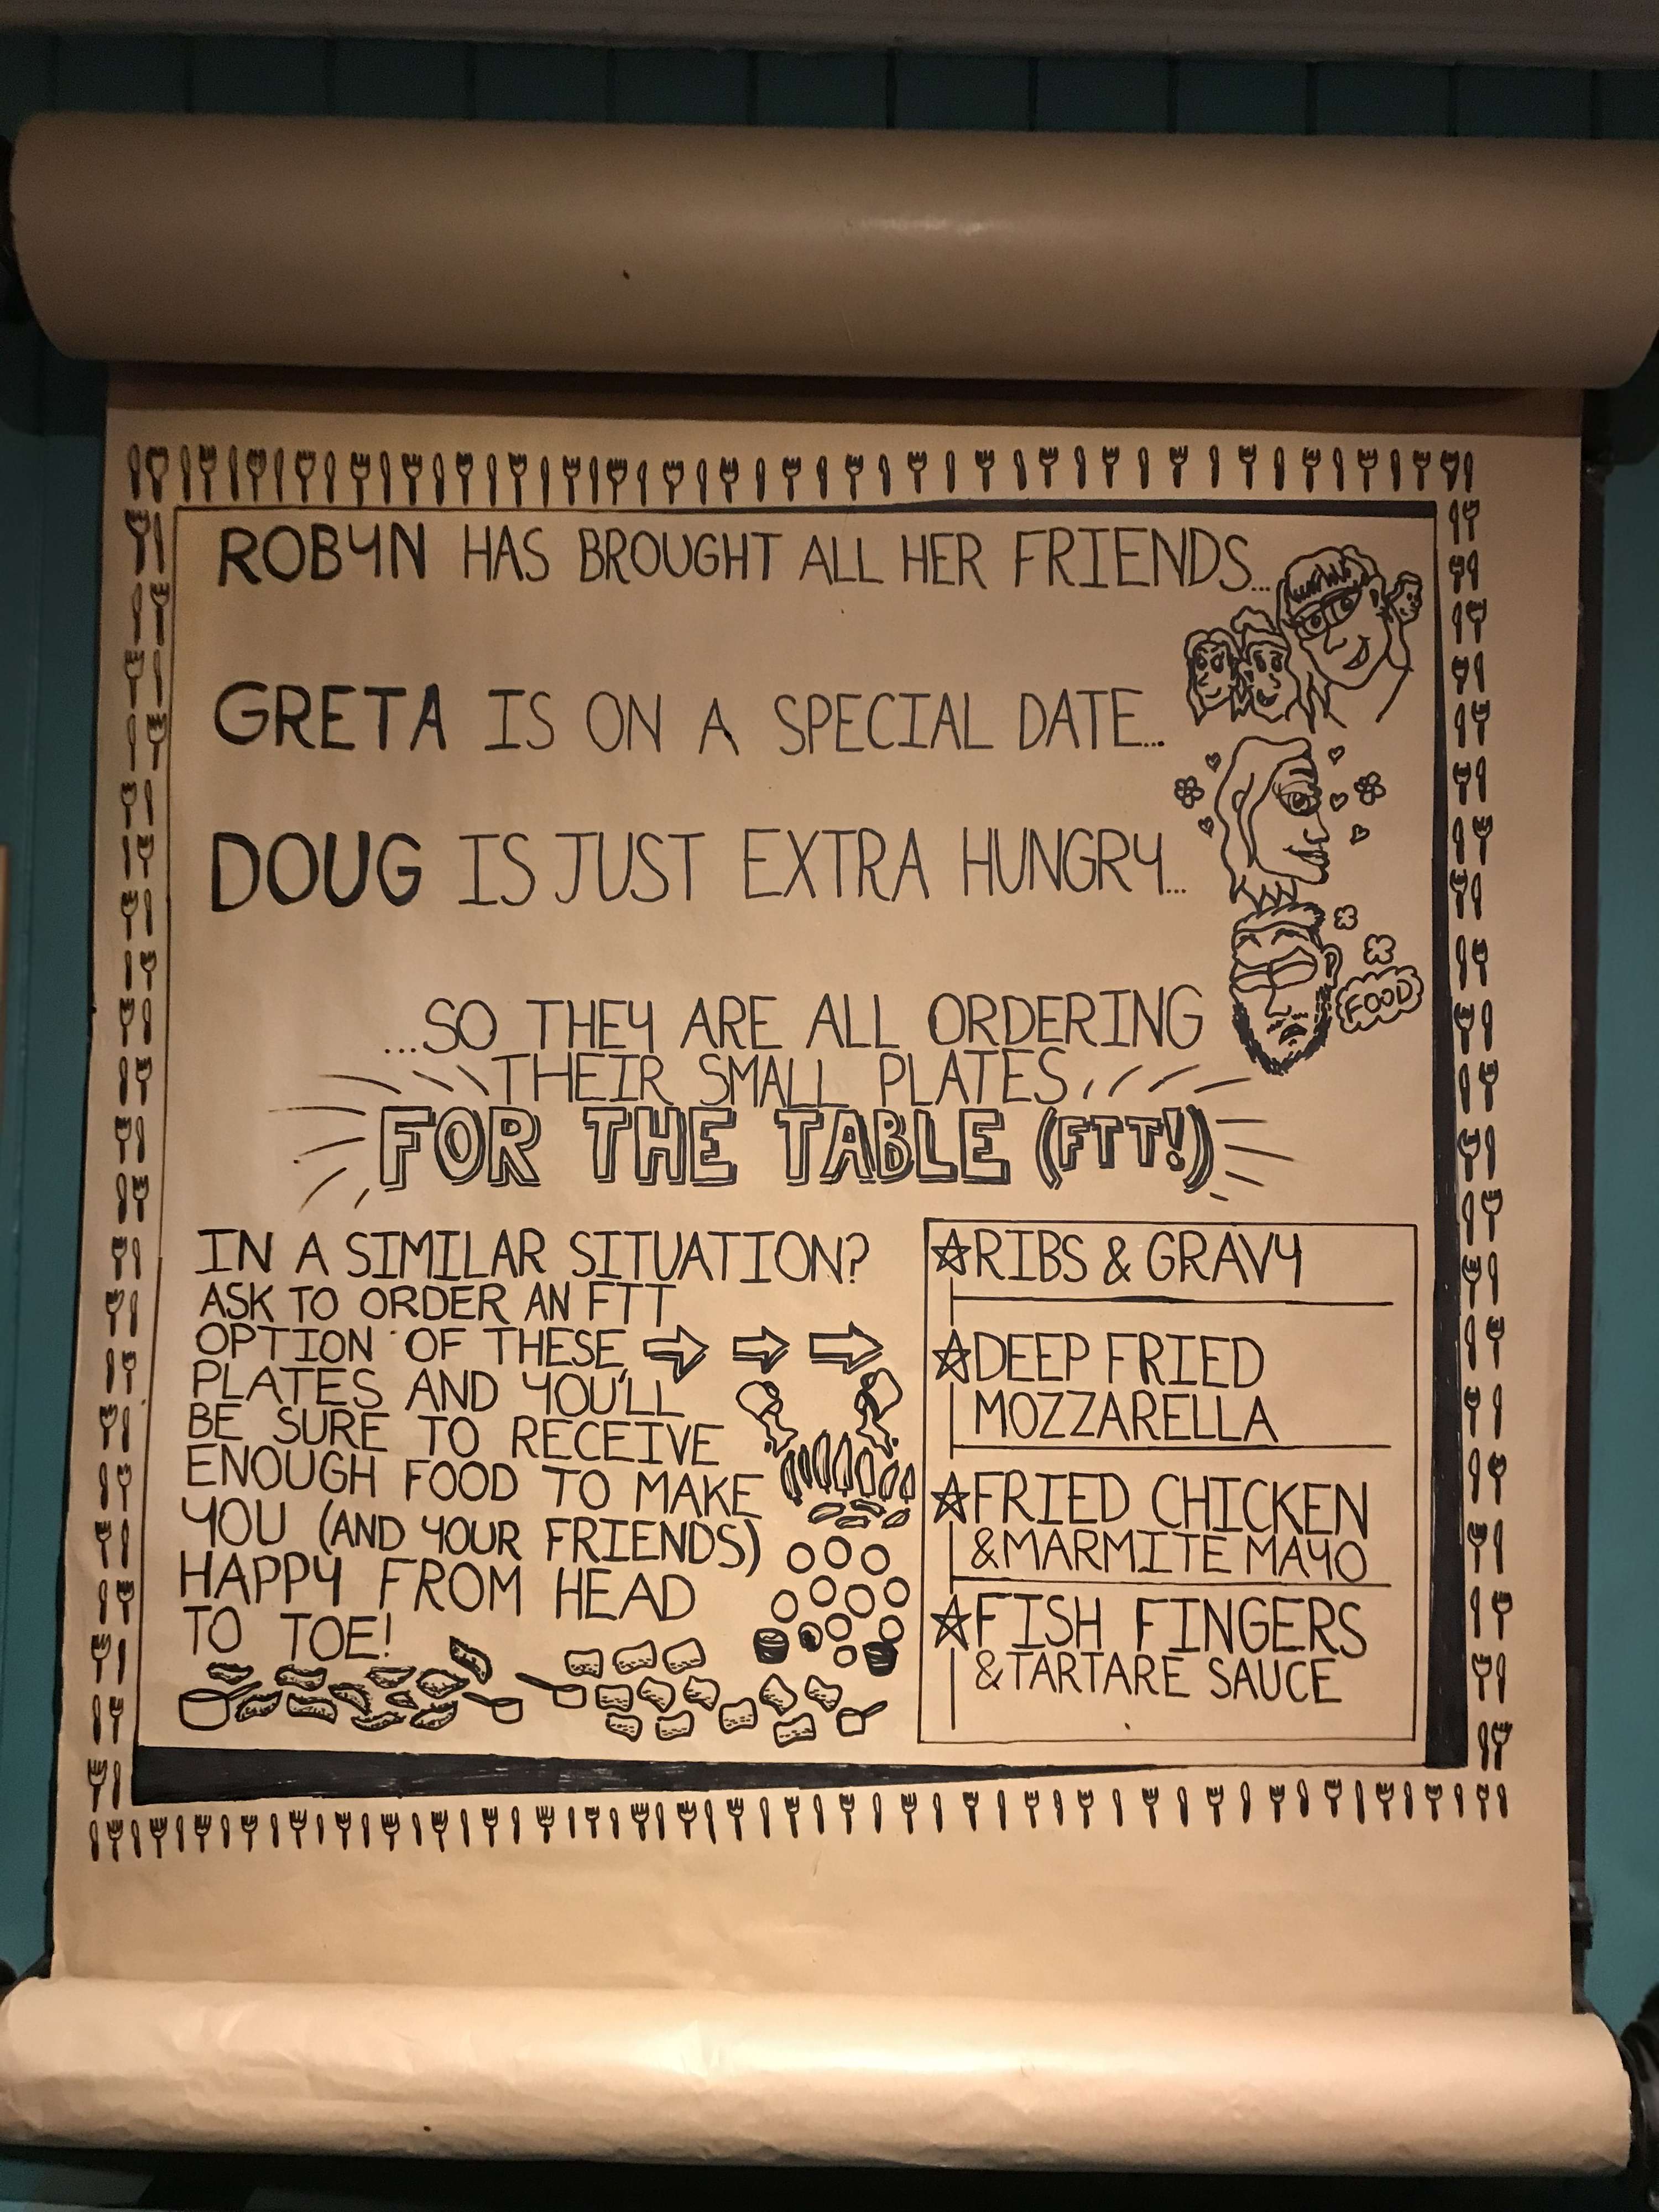 ROBYN HAS BROUGHT ALL HER FRIENDS...
GRETA IS ON A SPECIAL DATE...
DOUG IS JUST EXTRA HUNGRY...
FOOD
...SO THEY ARE ALL ORDERING
THEIR SMALL PLATES
FOR THE TABLE (FTT!)
IN A SIMILAR SITUATION?
ASK TO ORDER AN FTT
OPTION OF THESE
PLATES AND YOU'LL
BE SURE TO RECEIVE
ENOUGH FOOD TO MAKE
YOU (AND YOUR FRIENDS)
HAPPY FROM HEAD
TO TOE!
☆RIBS & GRAVY
☆DEEP FRIED
MOZZARELLA
☆FRIED CHICKEN
& MARMITE MAYO
☆FISH FINGERS
& TARTARE SAUCE